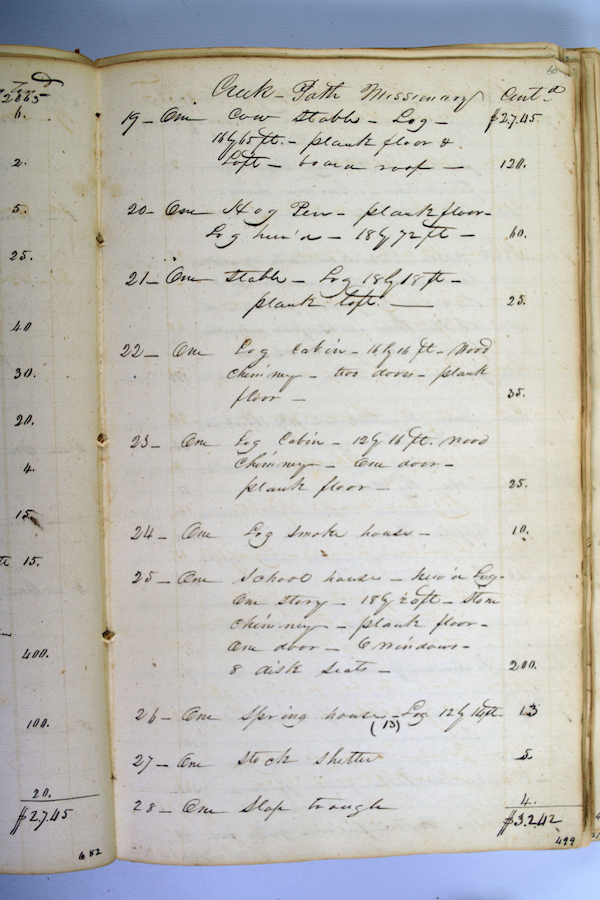 2665
6.
2.
5.
25.
40
30.
20.
4.
15.
15.
400.
100.
20.
$2745
482
60
Creek-Path Missionary Cont.d
19- One Cow Stable - Log - $2745
16 by 65 ft. - plank floor &
Loft - board roof - 120.
20- One Hog Pen - plank floor-
Log hew'd - 18 by 72 ft - 60.
21- One Stable - Log 18 by 18 ft -
plank loft - 25.
22- One Log Cabin - 16 by 16 ft - Wood
chimney - two doors - plank
floor - 35.
23- One Log Cabin - 12 by 16 ft. Wood
chimney - One door -
plank floor - 25.
24- One Log Smoke house - 10.
25- One School house - hew'd Log-
One story - 18 by 20 ft - Stone
chimney - plank floor -
One door - 6 windows -
8 disk seats - 200.
26- One Spring house - Log 12 by 14 ft. 13
(13)
27- One Stock shelter 5.
28- One Slop trough 4.
$3.242
499